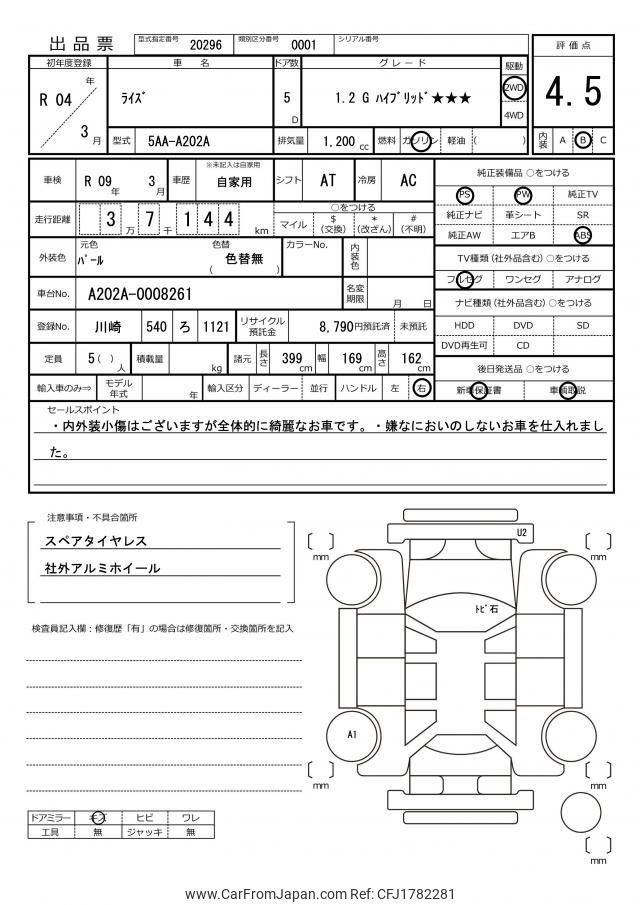 出品票 型式指定番号 20296 類別区分番号 0001 シリアル番号
評価点
4.5
内装 A B C
初年度登録 車名 ドア数 グレード 駆動
R 04 年 3 月
ライズ 5 D 1.2 G ハイブリッド★★★
2WD
4WD
型式 5AA-A202A 排気量 1,200 cc 燃料 ガソリン 軽油 ( )
車検 R 09 年 3 月 車歴 ※未記入は自家用 自家用 シフト AT 冷房 AC
走行距離 3 万 7 千 1 4 4 km
○をつける
マイル $ (交換) * (改ざん) # (不明)
外装色 元色 パール 色替 ( 色替無 ) カラーNo. 内装色
車台No. A202A-0008261 名変期限 月 日
登録No. 川崎 540 ろ 1121 リサイクル預託金 8,790円預託済 未預託
定員 5( ) 人 積載量 kg 諸元 長さ 399 cm 幅 169 cm 高さ 162 cm
輸入車のみ⇒ モデル年式 年 輸入区分 ディーラー 並行 ハンドル 左 右
純正装備品 ○をつける
PS PW 純正TV
純正ナビ 革シート SR
純正AW エアB ABS
TV種類 (社外品含む) ○をつける
フルセグ ワンセグ アナログ
ナビ種類 (社外品含む) ○をつける
HDD DVD SD
DVD再生可 CD
後日発送品 ○をつける
新車保証書 車輌取説
セールスポイント
・内外装小傷はございますが全体的に綺麗なお車です。・嫌なにおいのしないお車を仕入れまし
た。
注意事項・不具合箇所
スペアタイヤレス
社外アルミホイール
検査員記入欄：修復歴「有」の場合は修復箇所・交換箇所を記入
U2
トビ石
A1
mm
mm
mm
mm
mm
ドアミラー キズ ヒビ ワレ
工具 無 ジャッキ 無
www.CarFromJapan.com Ref: CFJ1782281